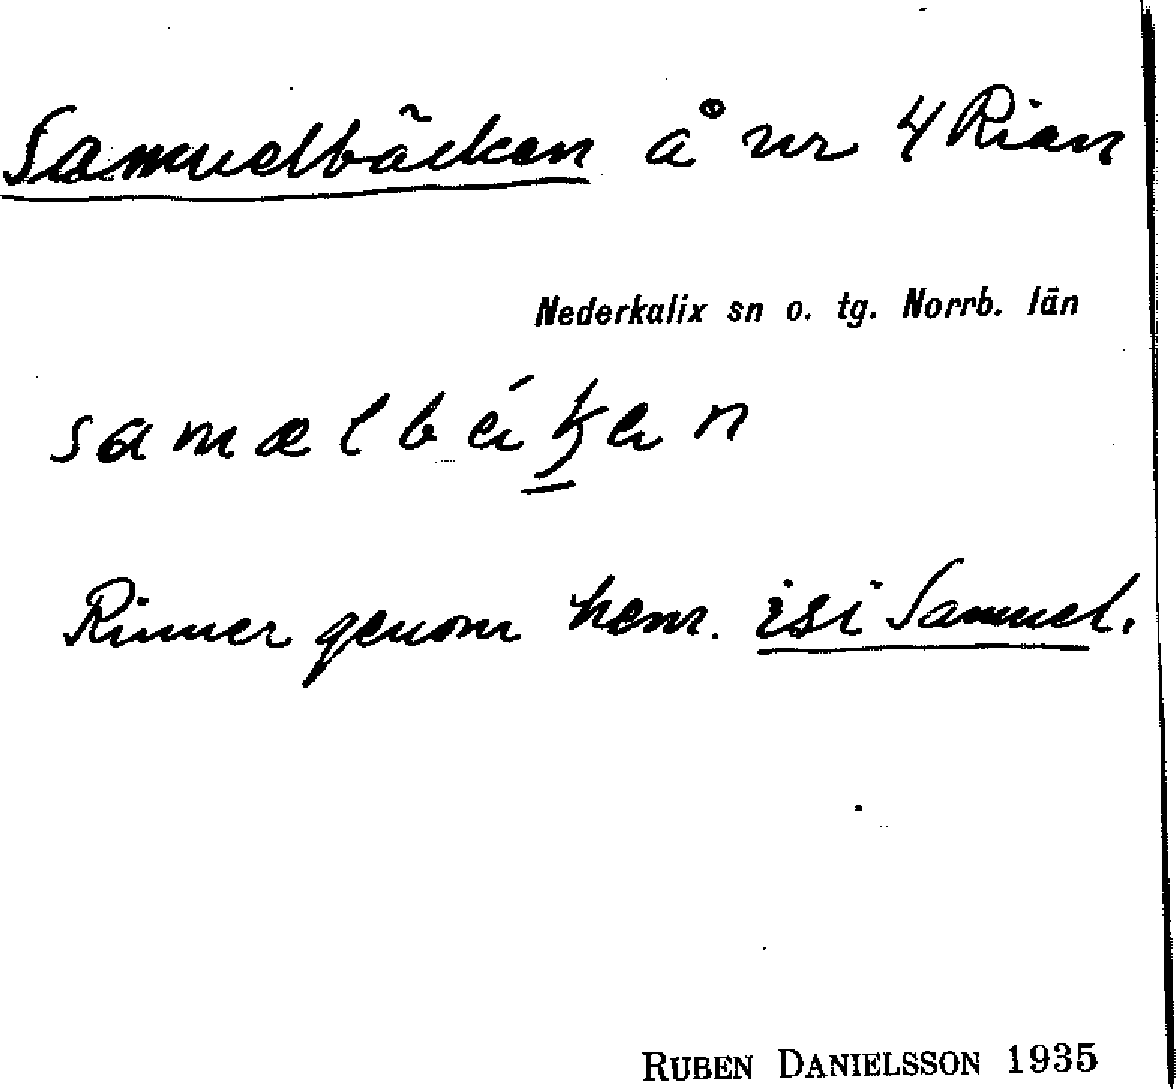 Samuelbäcken å nr 4 Rian
Nederkalix sn o. tg. Norrb. län
samælbɛ́ḵɛn
Rinner genom hem. isi Samuel.
RUBEN DANIELSSON 1935